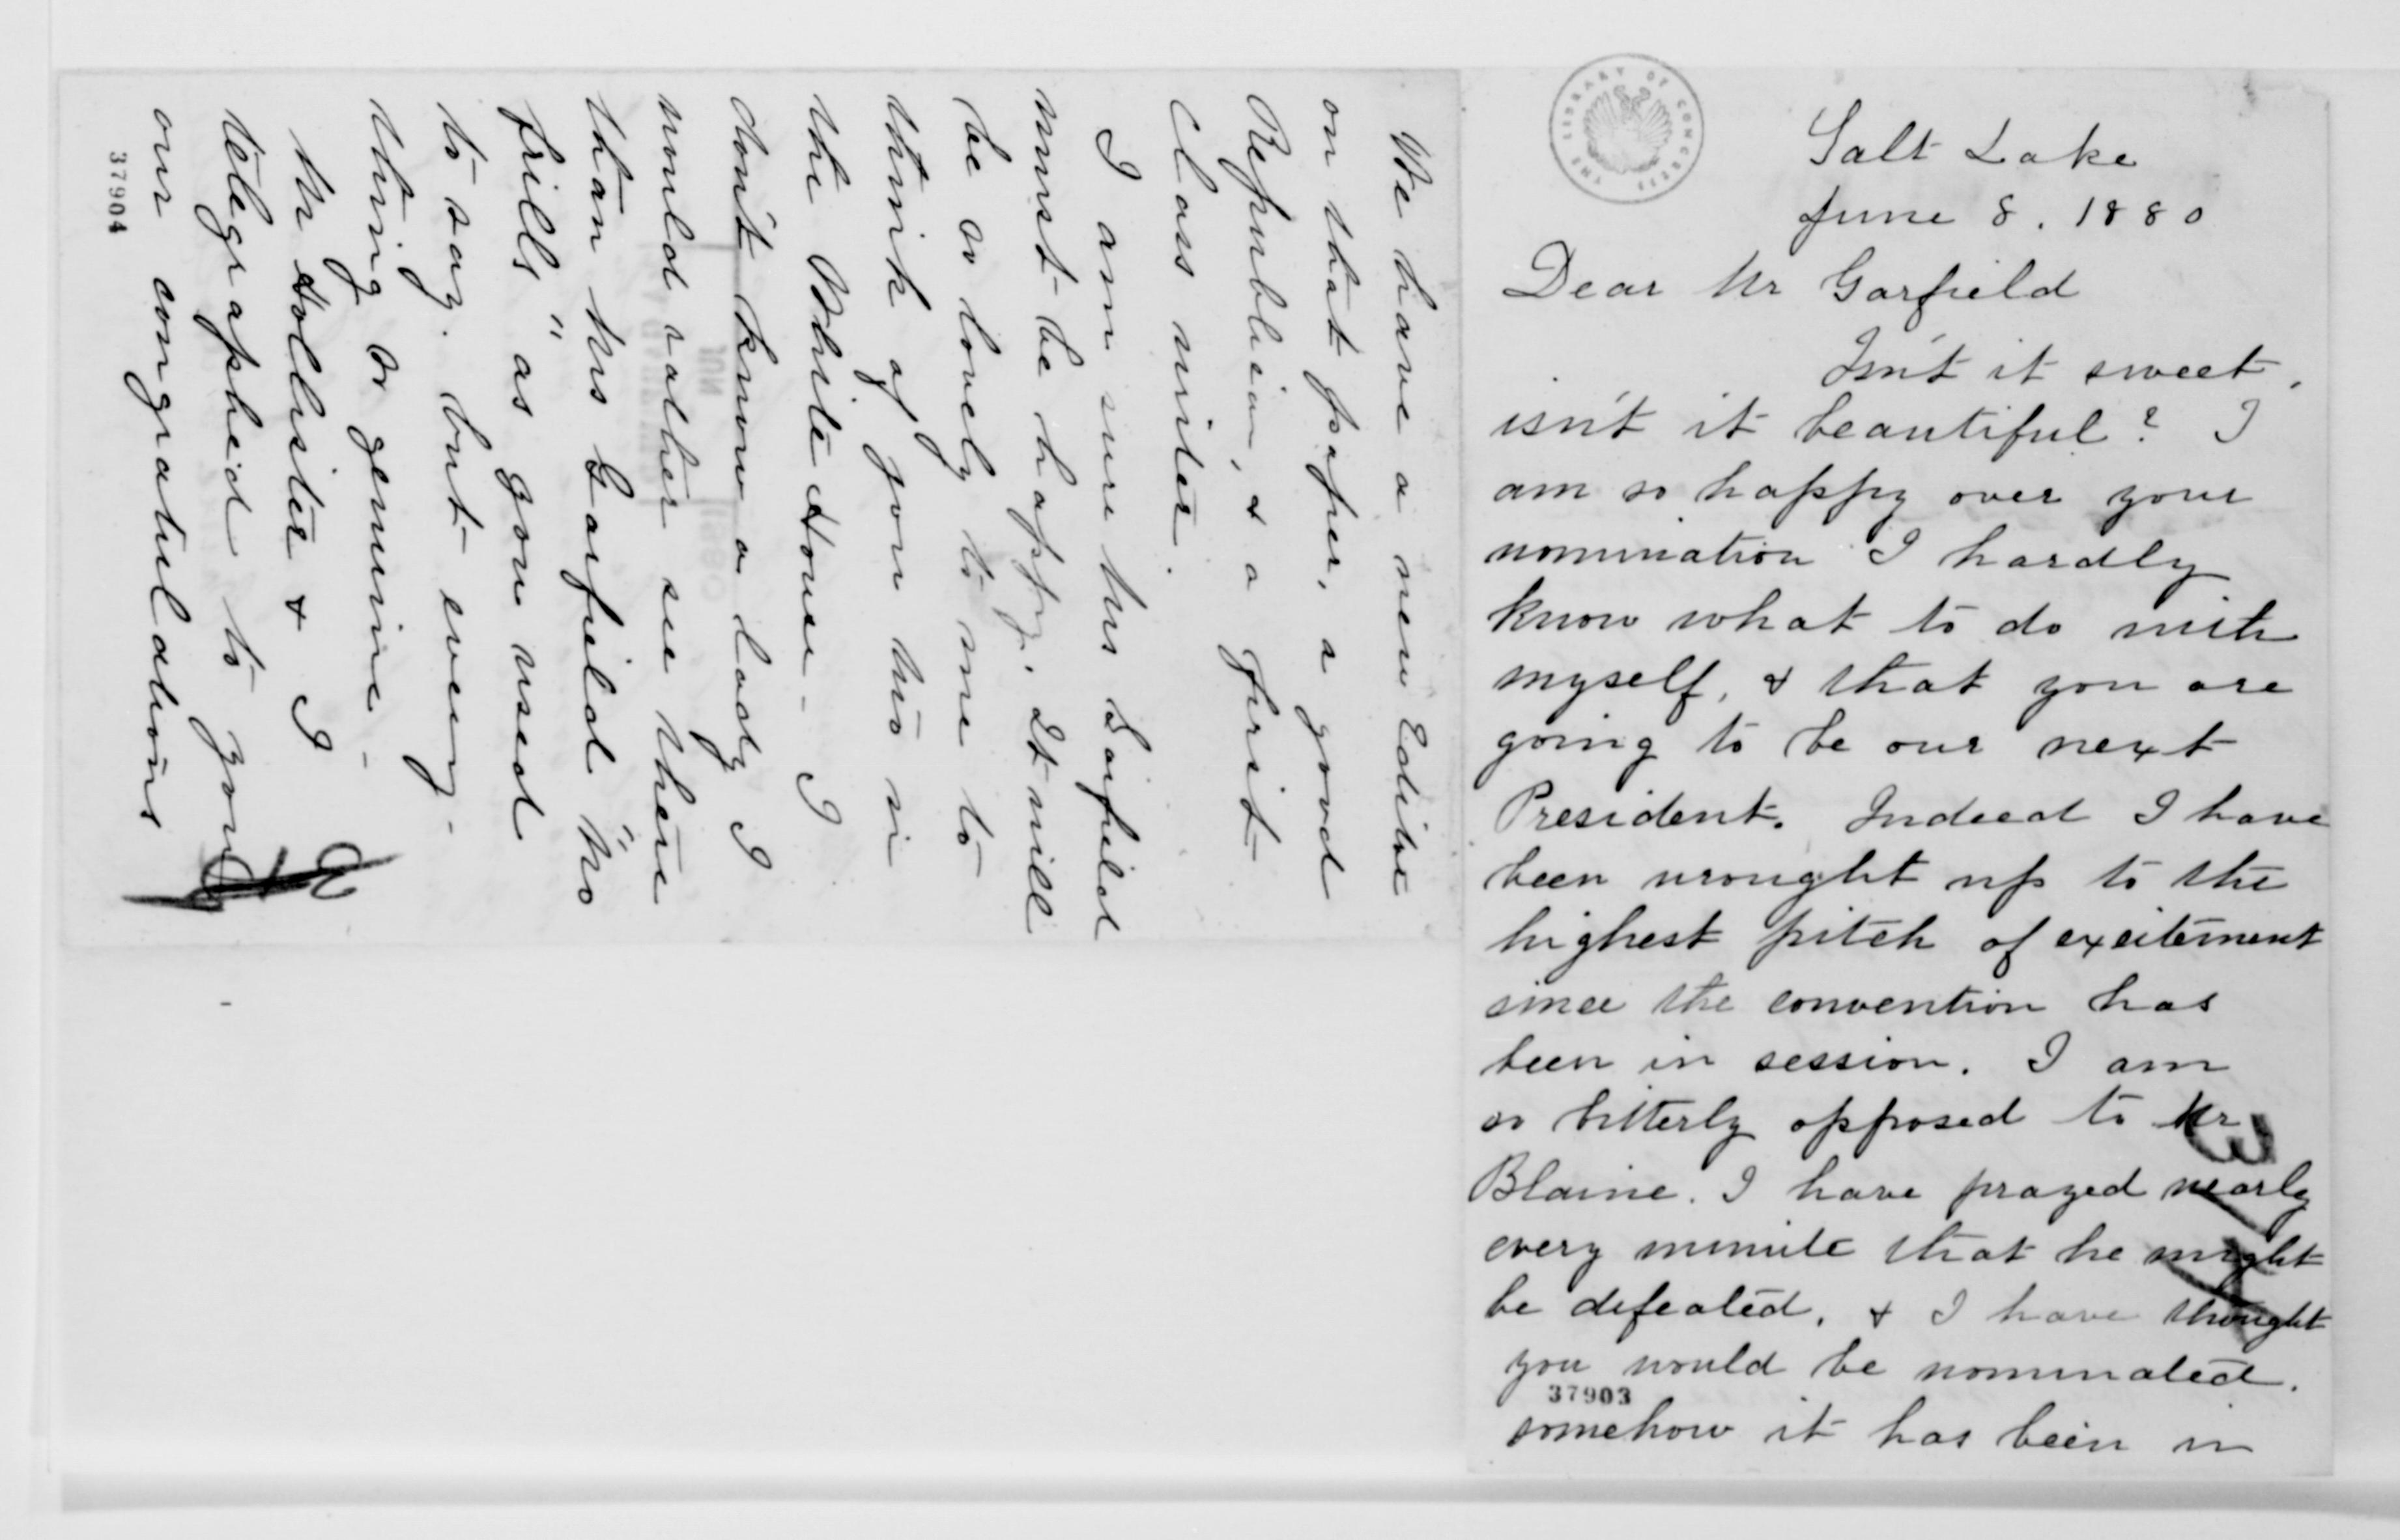 THE LIBRARY OF CONGRESS
Salt Lake
June 8. 1880
Dear Mr Garfield
Isn't it sweet,
isn't it beautiful? I
am so happy over your
nomination I hardly
know what to do with
myself, & that you are
going to be our next
President. Indeed I have
been wrought up to the
highest pitch of excitement
since the convention has
been in session. I am
so bitterly opposed to Mr
Blaine. I have prayed nearly
every minute that he might
be defeated, & I have thought
you would be nominated.
37903
somehow it has been in
We have a new Editor
on that paper, a good
Republican, & a first
class writer.
I am sure Mrs Garfield
must be happy. It will
be so lovely to me to
think of you two in
the White House - I
don't know a lady I
would rather see there
than Mrs Garfield "no
frills" as you used
to say. but every-
thing so genuine -
Mr Hollister & I
telegraphed to you
our congratulations
37904